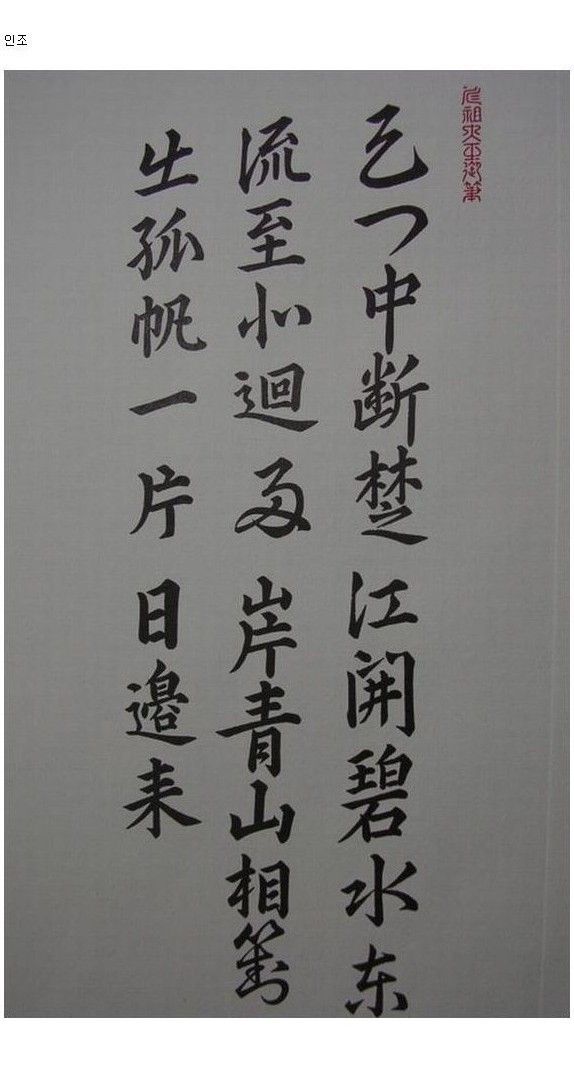 인조
仁祖大王御筆
天門中断楚江開碧水东
流至此迴两岸青山相對
出孤帆一片日邊来